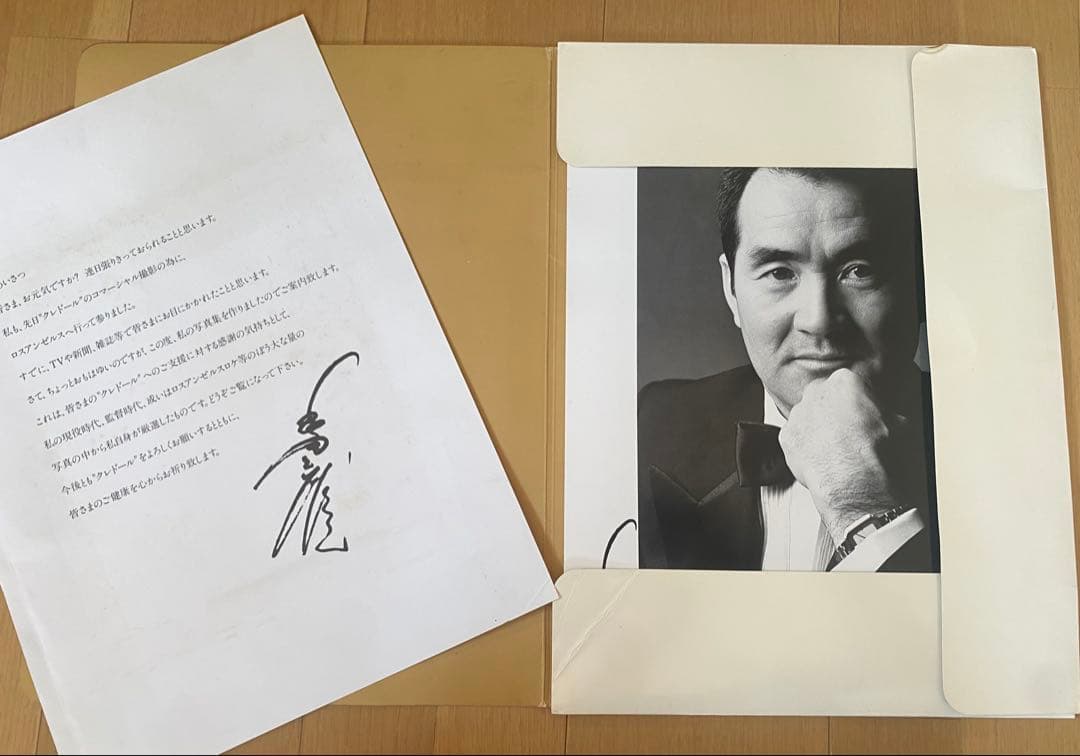 いさつ
皆さま、お元気ですか? 連日張りきっておられることと思います。
私も、先日"クレドール"のコマーシャル撮影の為に、
ロスアンゼルスへ行って参りました。
すでに、TVや新聞、雑誌等で皆さまにお目にかかれたことと思います。
さて、ちょっとおもはゆいのですが、この度、私の写真集を作りましたのでご案内致します。
これは、皆さまの"クレドール"へのご支援に対する感謝の気持ちとして、
私の現役時代、監督時代、或いはロスアンゼルスロケ等のぼう大な量の
写真の中から私自身が厳選したものです。どうぞご覧になって下さい。
今後とも"クレドール"をよろしくお願いするとともに、
皆さまのご健康を心からお祈り致します。